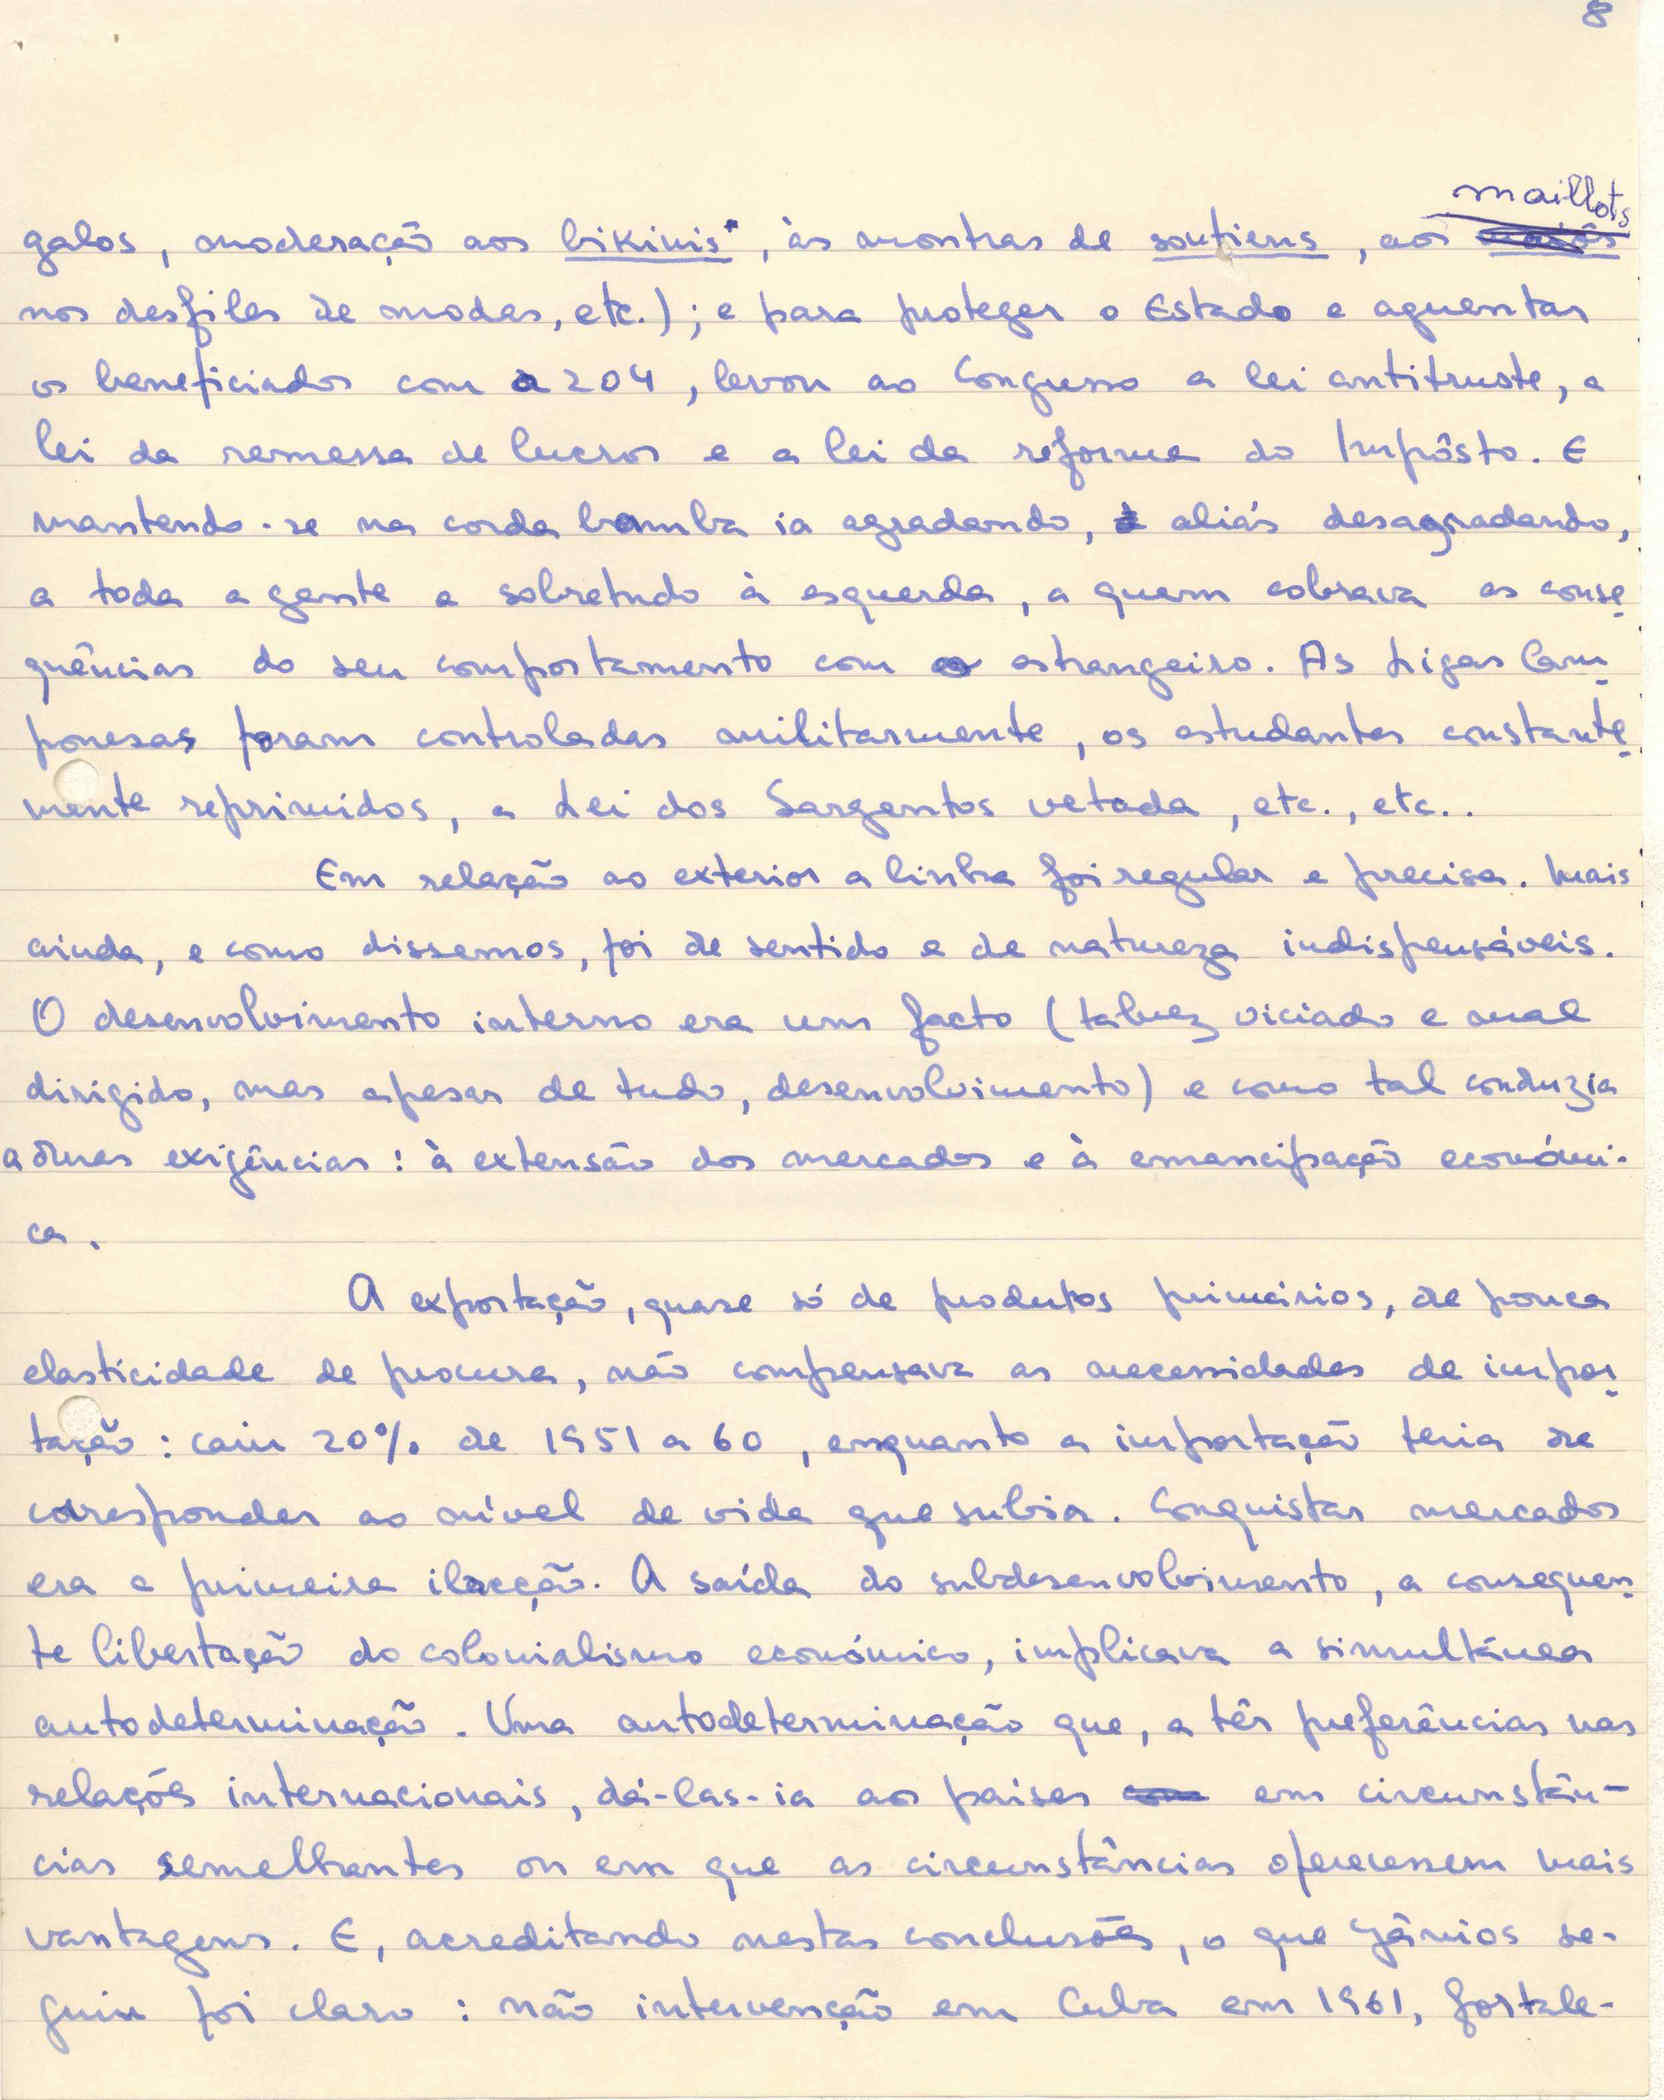 8
maillots
galos, moderação aos bikinis*, às montras de soutiens, aos
nos desfiles de modas, etc.); e para proteger o Estado e aguentar
os beneficiados com a 204, levou ao Congresso a lei antitruste, a
lei da remessa de lucros e a lei da reforma do Impôsto. E
mantendo-se na corda bamba ia agradando, aliás desagradando,
a toda a gente e sobretudo à esquerda, a quem cobrava as conse
quências do seu comportamento com o estrangeiro. As Ligas Cam
ponesas foram controladas militarmente, os estudantes constante
mente reprimidos, a Lei dos Sargentos vetada, etc., etc..
Em relação ao exterior a linha foi regular e precisa. Mais
ainda, e como dissemos, foi de sentido e de natureza indispensáveis.
O desenvolvimento interno era um facto (talvez viciado e mal
dirigido, mas apesar de tudo, desenvolvimento) e como tal conduzia
a duas exigências: à extensão dos mercados e à emancipação económi-
ca.
A exportação, quase só de produtos primários, de pouca
elasticidade de procura, não compensava as necessidades de impor
tação: caiu 20% de 1951 a 60, enquanto a importação teria de
corresponder ao nível de vida que subia. Conquistar mercados
era a primeira ilacção. A saída do subdesenvolvimento, a consequen
te libertação do colonialismo económico, implicava a simultânea
autodeterminação. Uma autodeterminação que, a têr preferências nas
relações internacionais, dá-las-ia aos países em circunstân-
cias semelhantes ou em que as circunstâncias oferecessem mais
vantagens. E, acreditando nestas conclusões, o que Jânios se-
guiu foi claro: não intervenção em Cuba em 1961, fortale-